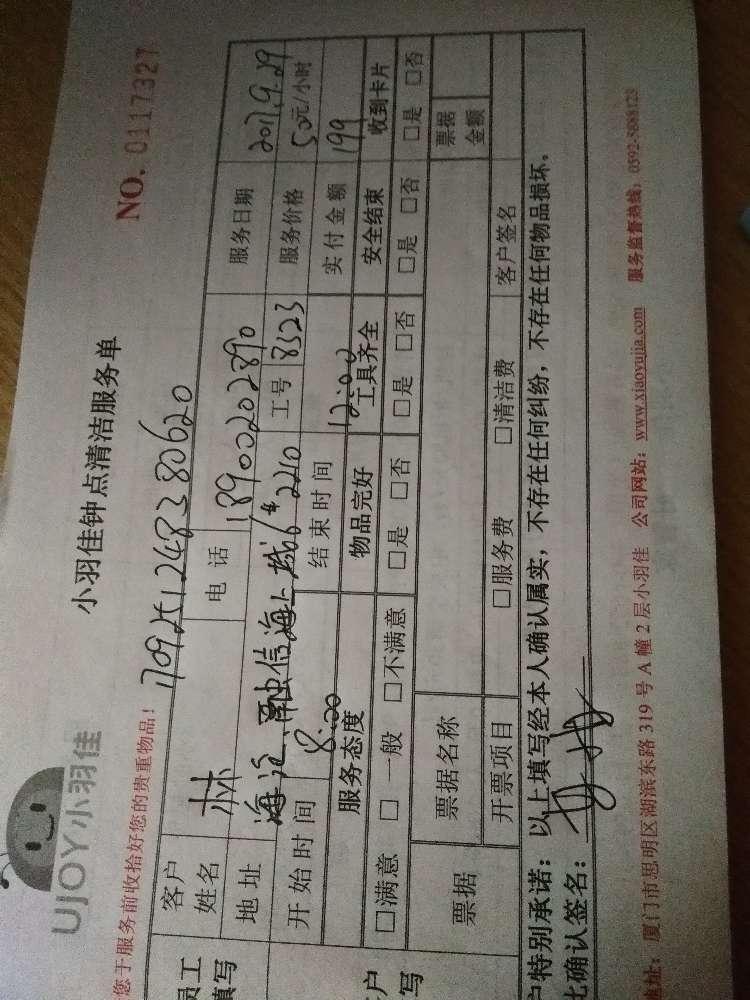 UJOY小羽佳
小羽佳钟点清洁服务单
NO. 0117327
您于服务前收拾好您的贵重物品!
客户姓名 林 电话 18900202890 服务日期 2017.9.29
地址 海沧.融信海上城6# 2210 工号 8323 服务价格 50元/小时
开始时间 8:00 结束时间 12:00 实付金额 199
服务态度 物品完好 工具齐全 安全结束 收到卡片
□满意 □一般 □不满意 □是 □否 □是 □否 □是 □否 □是 □否
票据 票据名称 票据金额
开票项目 □服务费 □清洁费 客户签名
户特别承诺:以上填写经本人确认属实,不存在任何纠纷,不存在任何物品损坏。
比确认签名:
地址:厦门市思明区湖滨东路 319 号 A 幢 2 层小羽佳 公司网站:www.xiaoyujia.com 服务监督热线:0592-5888123
员工
填写
户
写